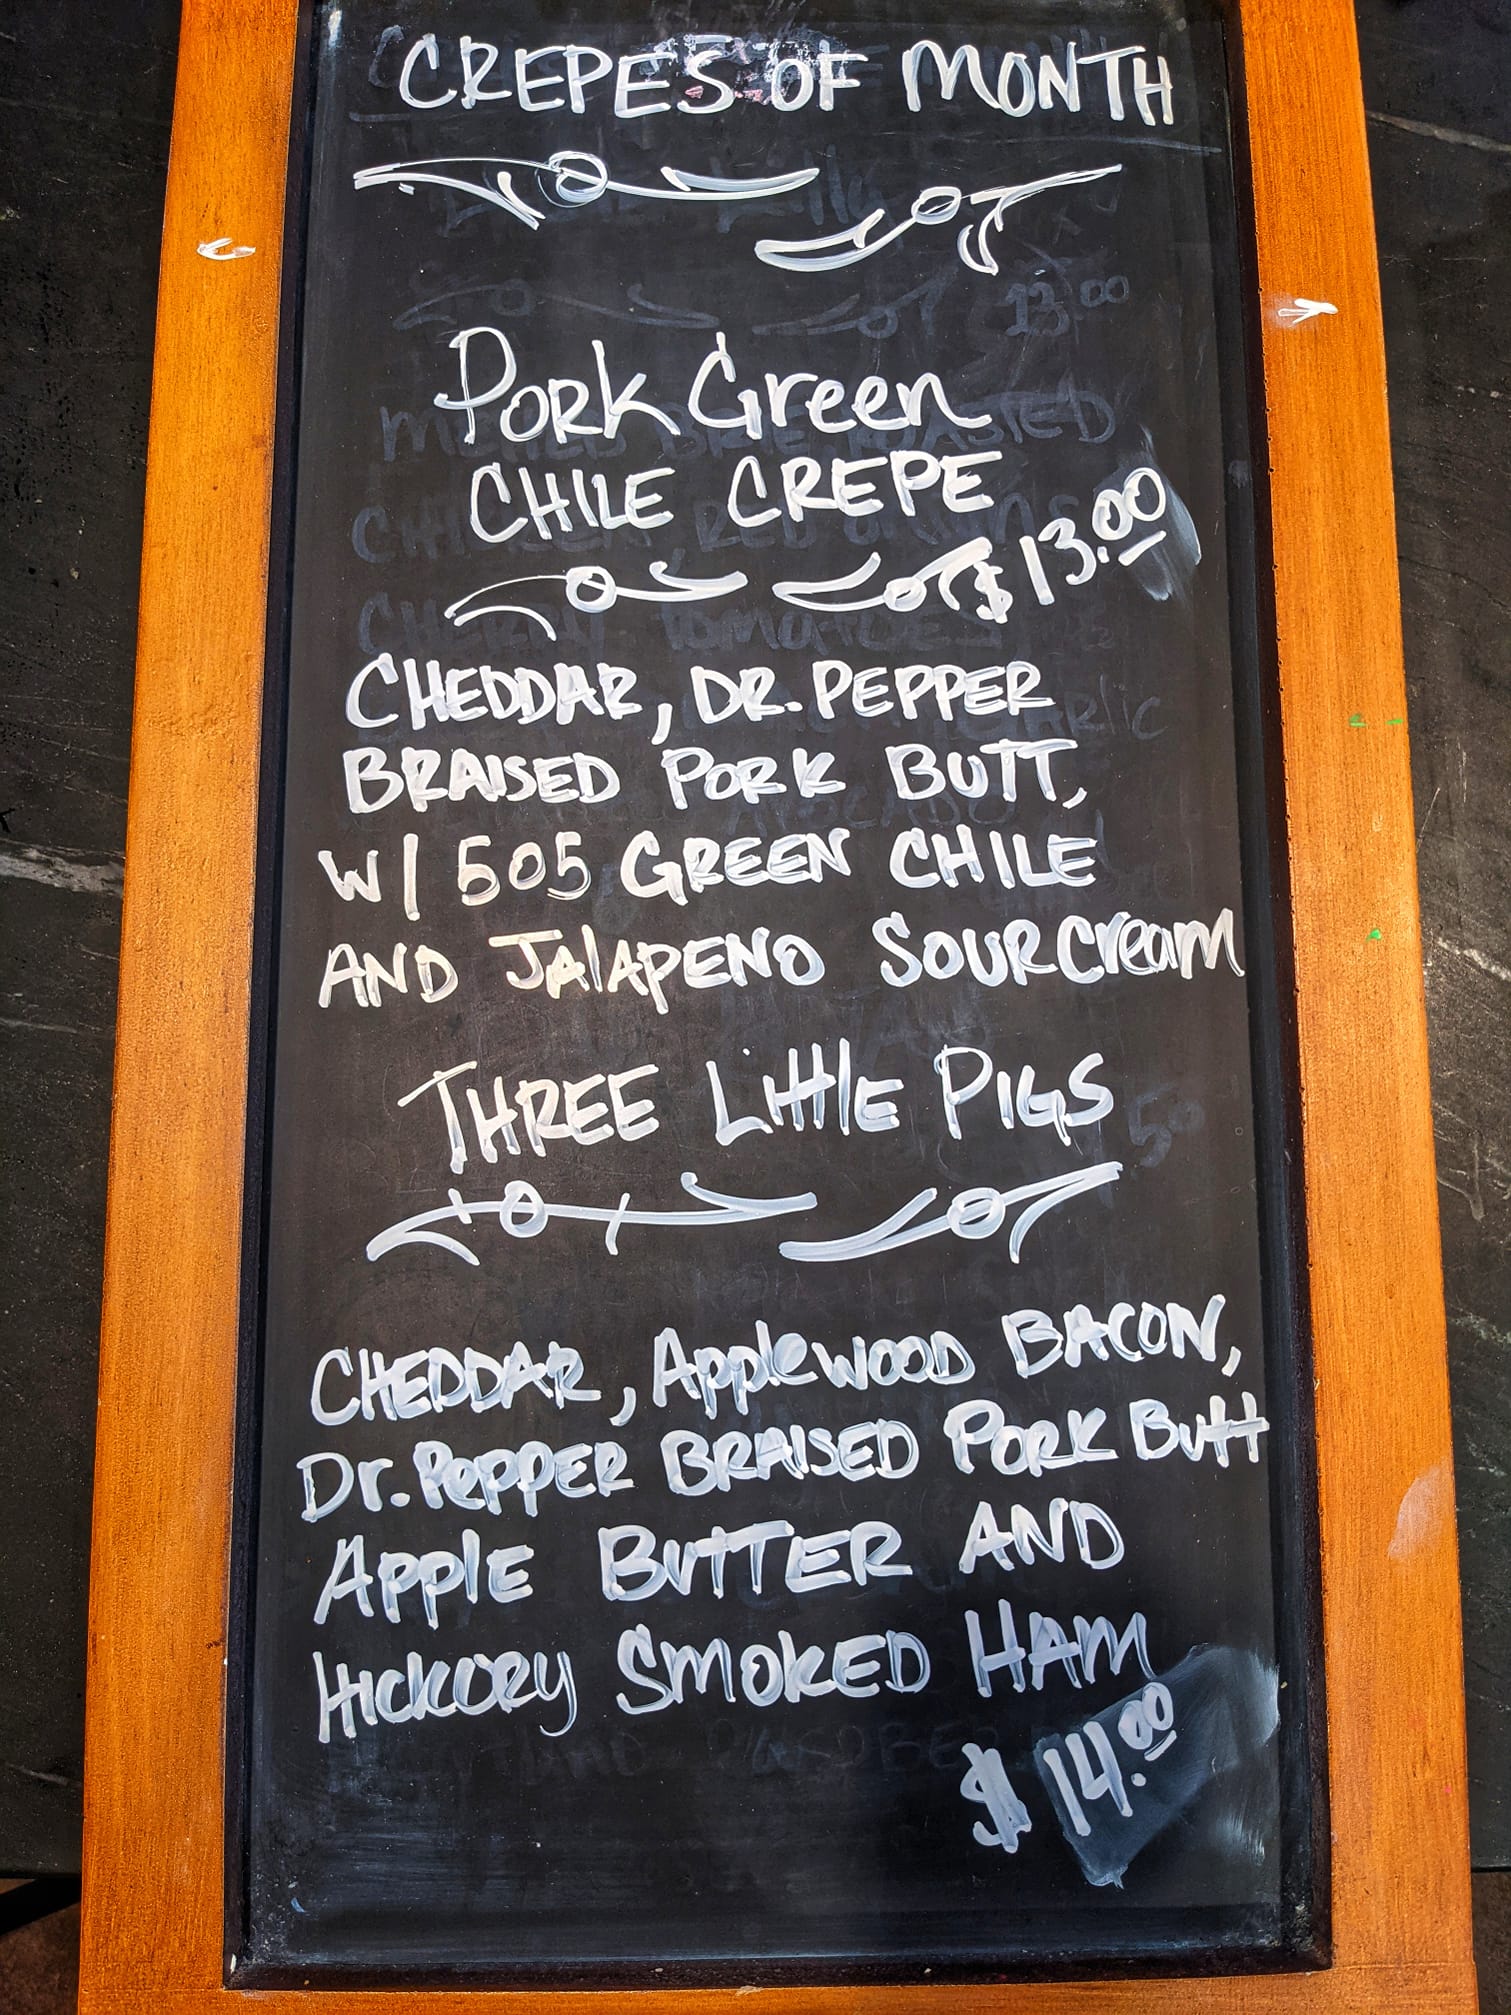 CREPES OF MONTH
Pork Green
CHILE CREPE
$13.00
CHEDDAR, DR. PEPPER
BRAISED PORK BUTT,
W/ 505 GREEN CHILE
AND JALAPENO SOUR Cream
THREE LittlE PIGS
CHEDDAR, ApplewOOD BACON,
Dr. PEPPER BRAISED PORK Butt
Apple BUTTER AND
HICKORY SMOKED HAM
$14.00